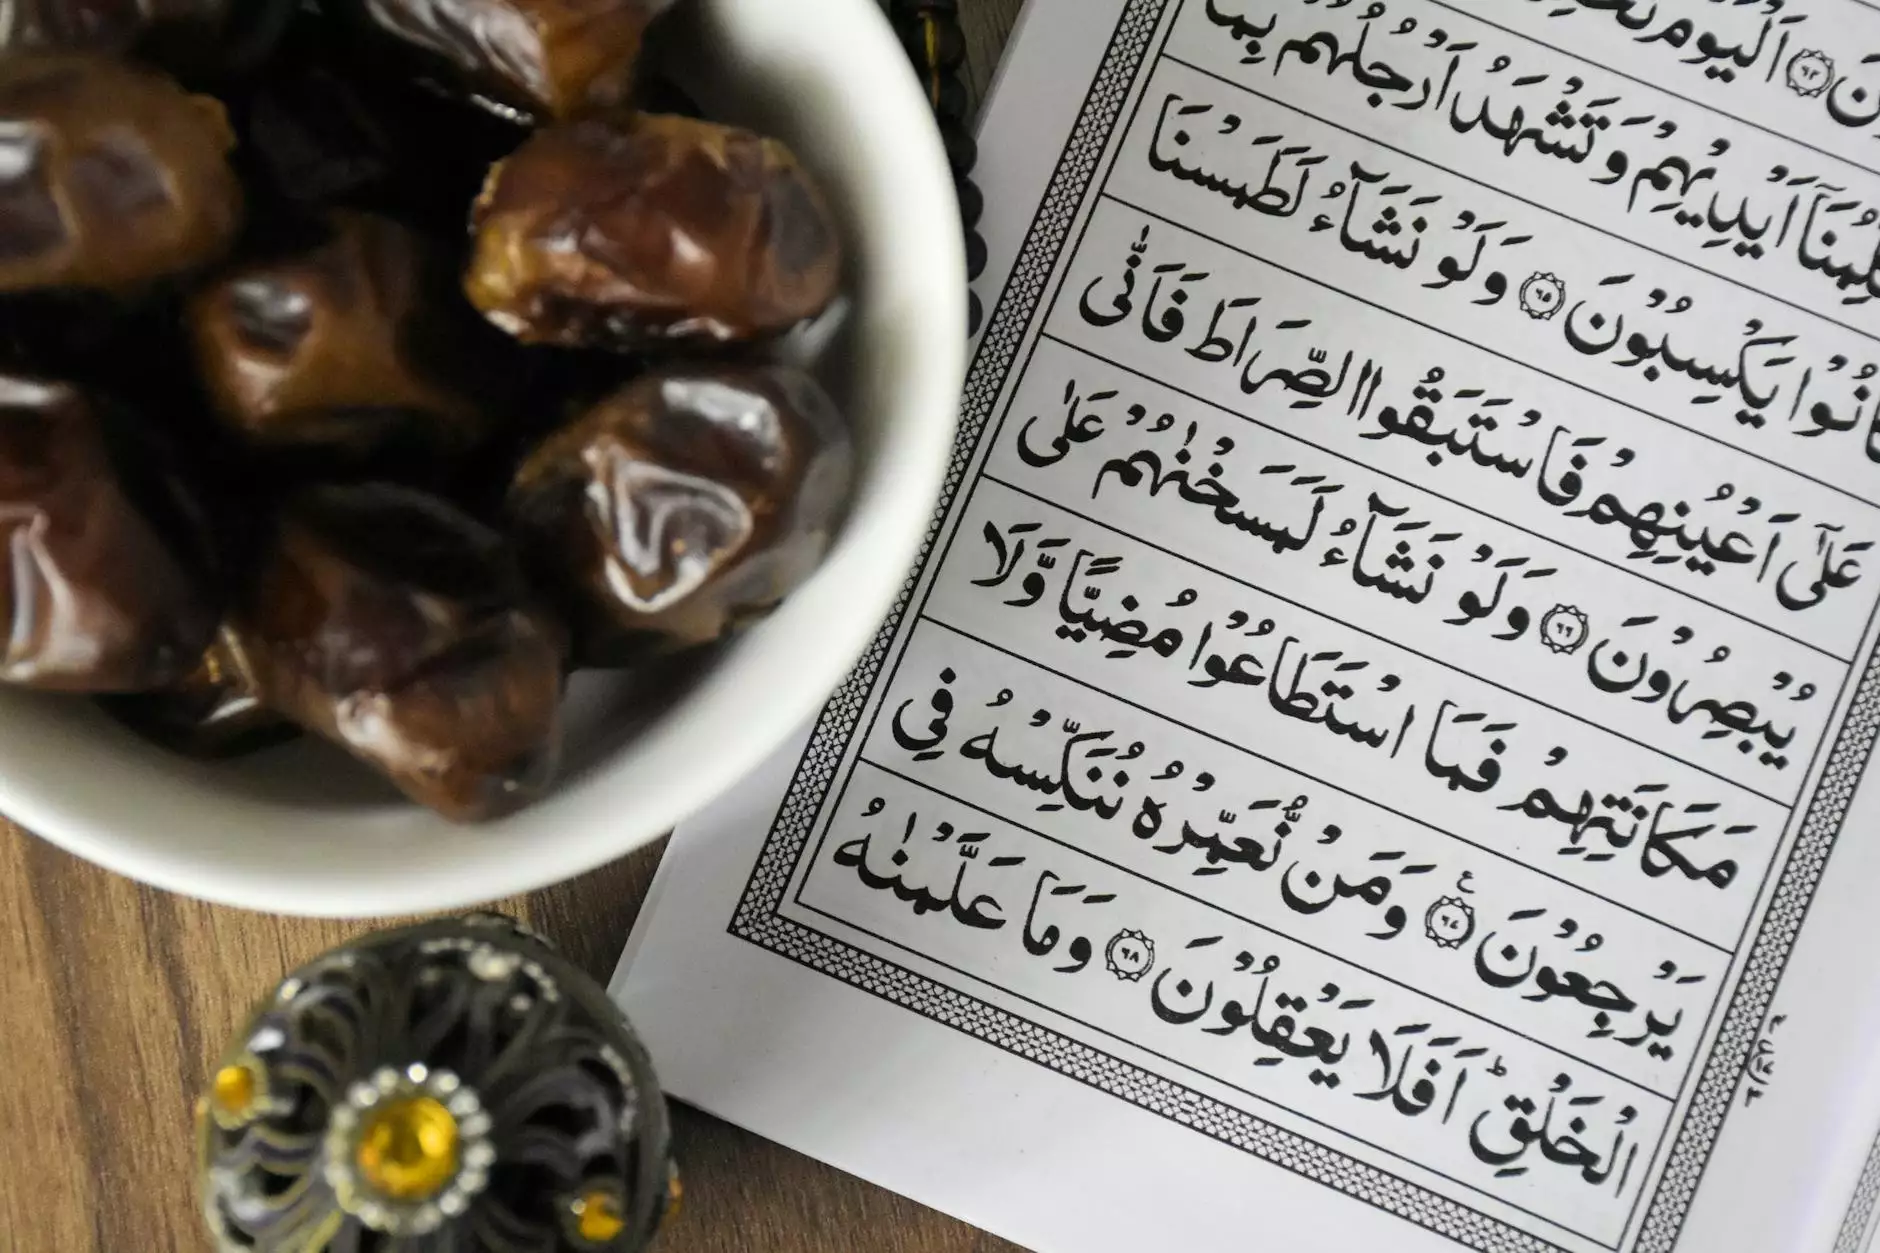 اَلْيَوْمَ
اَيْدِيْهِمْ وَتَشْهَدُ اَرْجُلُهُمْ بِمَا
كَانُوْا يَكْسِبُوْنَ ٦٥ وَلَوْ نَشَآءُ لَطَمَسْنَا
عَلٰٓى اَعْيُنِهِمْ فَاسْتَبَقُوا الصِّرَاطَ فَاَنّٰى
يُبْصِرُوْنَ ٦٦ وَلَوْ نَشَآءُ لَمَسَخْنٰهُمْ عَلٰى
مَكَانَتِهِمْ فَمَا اسْتَطَاعُوْا مُضِيًّا وَّلَا
يَرْجِعُوْنَ ٦٧ وَمَنْ نُّعَمِّرْهُ نُنَكِّسْهُ فِى
الْخَلْقِ ؕ اَفَلَا يَعْقِلُوْنَ ٦٨ وَمَا عَلَّمْنٰهُ